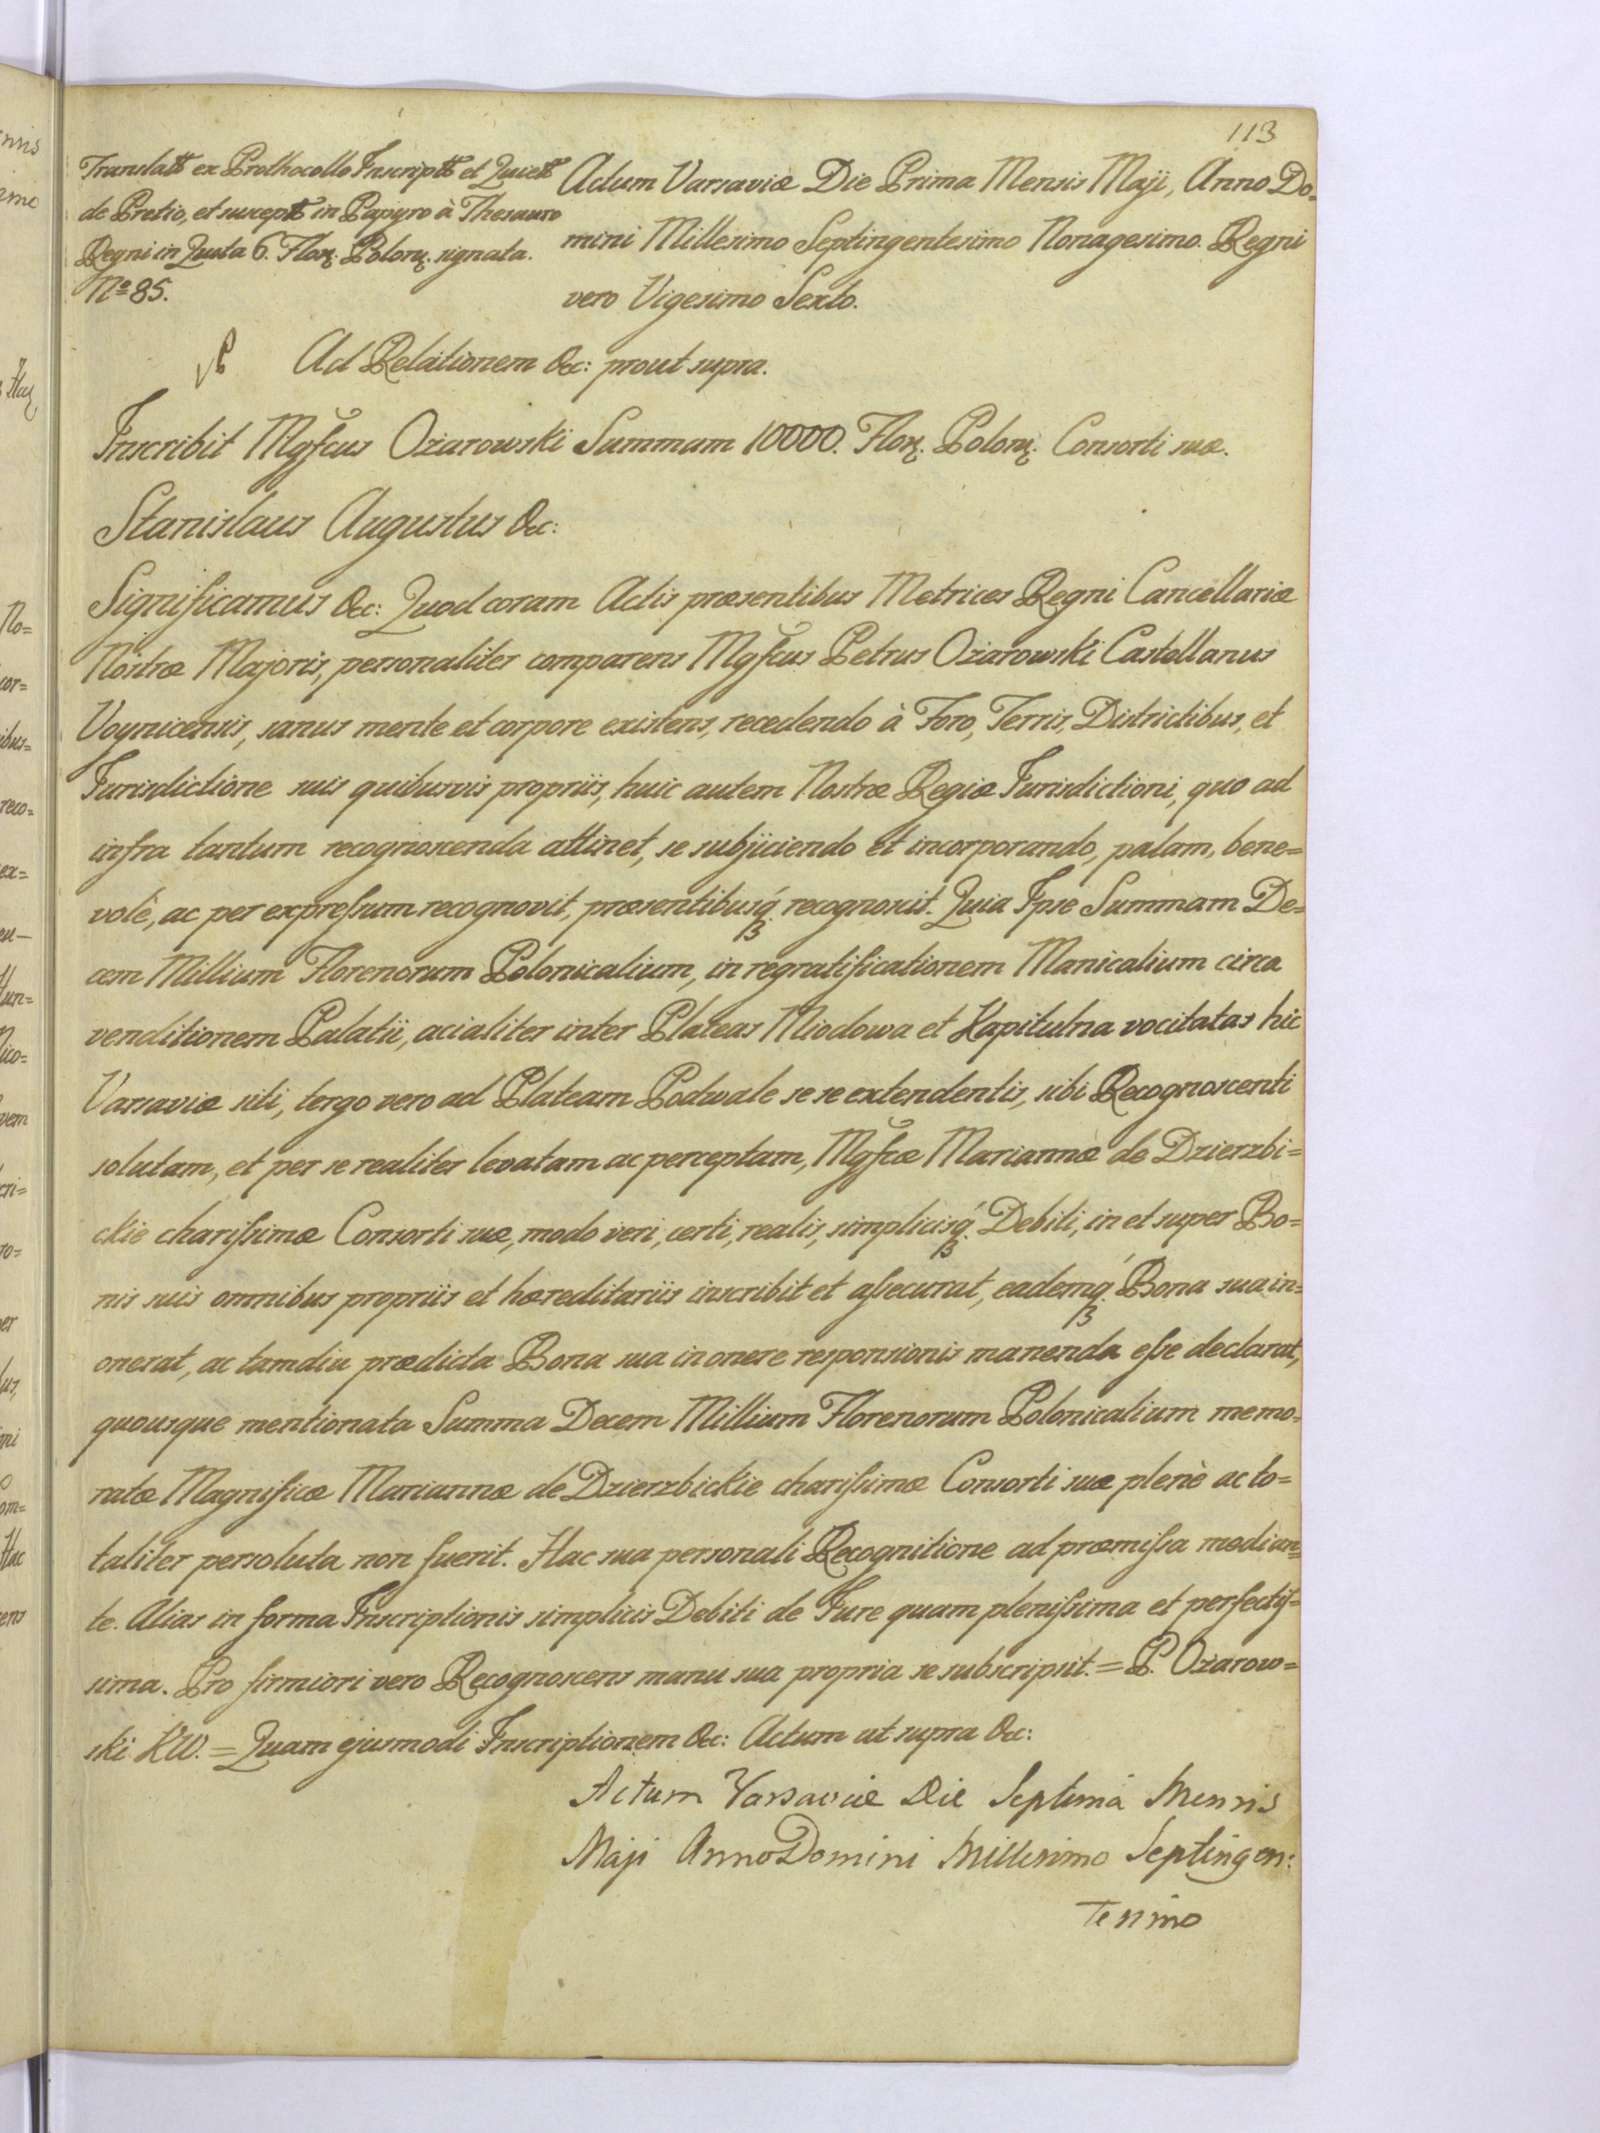 113
Translatt ex Prothocollo Inscriptt et Quiett
de Pretio, et susceptt in Papyro à Thesauro
Regni in Quota 6. Flor. Polon. signata.
No 85.
Actum Varsaviæ Die Prima Mensis Maji, Anno Do=
mini Millesimo Septingentesimo Nonagesimo. Regni
vero Vigesimo Sexto.
Ad Relationem &c: prout supra.
Inscribit Mgfcus Ożarowski Summam 10000. Flor. Polon. Consorti suæ.
Stanislaus Augustus &c:
Significamus &c: Quod coram Actis præsentibus Metrices Regni Cancellariæ
Nostræ Majoris, personaliter comparens Mgfcus Petrus Ożarowski Castellanus
Voynicensis, sanus mente et corpore existens, recedendo à Foro, Terris, Districtibus, et
Jurisdictione suis quibusvis propriis, huic autem Nostræ Regiæ Jurisdictioni, quo ad
infra tantum recognoscenda attinet, se subjiciendo et incorporando, palam, bene=
volè, ac per expreſsum recognovit, præsentibusq́ꝫ recognoscit. Quia Ipse Summam De=
cem Millium Florenorum Polonicalium, in regratificationem Manicalium circa
venditionem Palatii, acialiter inter Plateas Miodowa et Kapitulna vocitatas hic
Varsaviæ siti, tergo vero ad Plateam Podwale se se extendentis, sibi Recognoscenti
solutam, et per se realiter levatam ac perceptam, Mgfcæ Mariannæ de Dzierzbi=
ckie chariſsimæ Consorti suæ, modo veri, certi, realis, simplicisq́ꝫ Debiti, in et super Bo=
nis suis omnibus propriis et hæreditariis inscribit et aſsecurat, eademq́ꝫ Bona sua in=
onerat, ac tamdiu prædicta Bona sua in onere responsionis manenda eſse declarat,
quousque mentionata Summa Decem Millium Florenorum Polonicalium memo=
ratæ Magnificæ Mariannæ de Dzierzbickie chariſsimæ Consorti suæ plenè ac to=
taliter persoluta non fuerit. Hac sua personali Recognitione ad præmiſsa median=
te. Alias in forma Inscriptionis simplicis Debiti de Jure quam pleniſsima et perfectiſ=
sima. Pro firmiori vero Recognoscens manu sua propria se subscripsit. = P. Ożarow=
ski KW. = Quam ejusmodi Inscriptionem &c: Actum ut supra &c:
Actum Varsaviæ Die Septima Mensis
Maji Anno Domini Millesimo Septingen:
tesimo